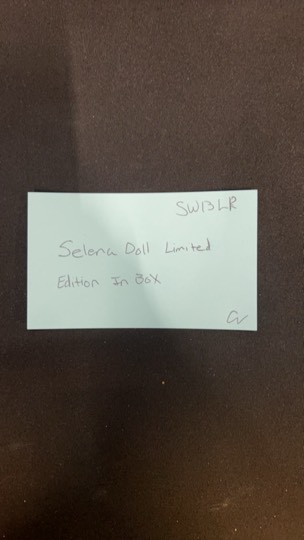 SW13LR
Selena Doll Limited
Edition In Box